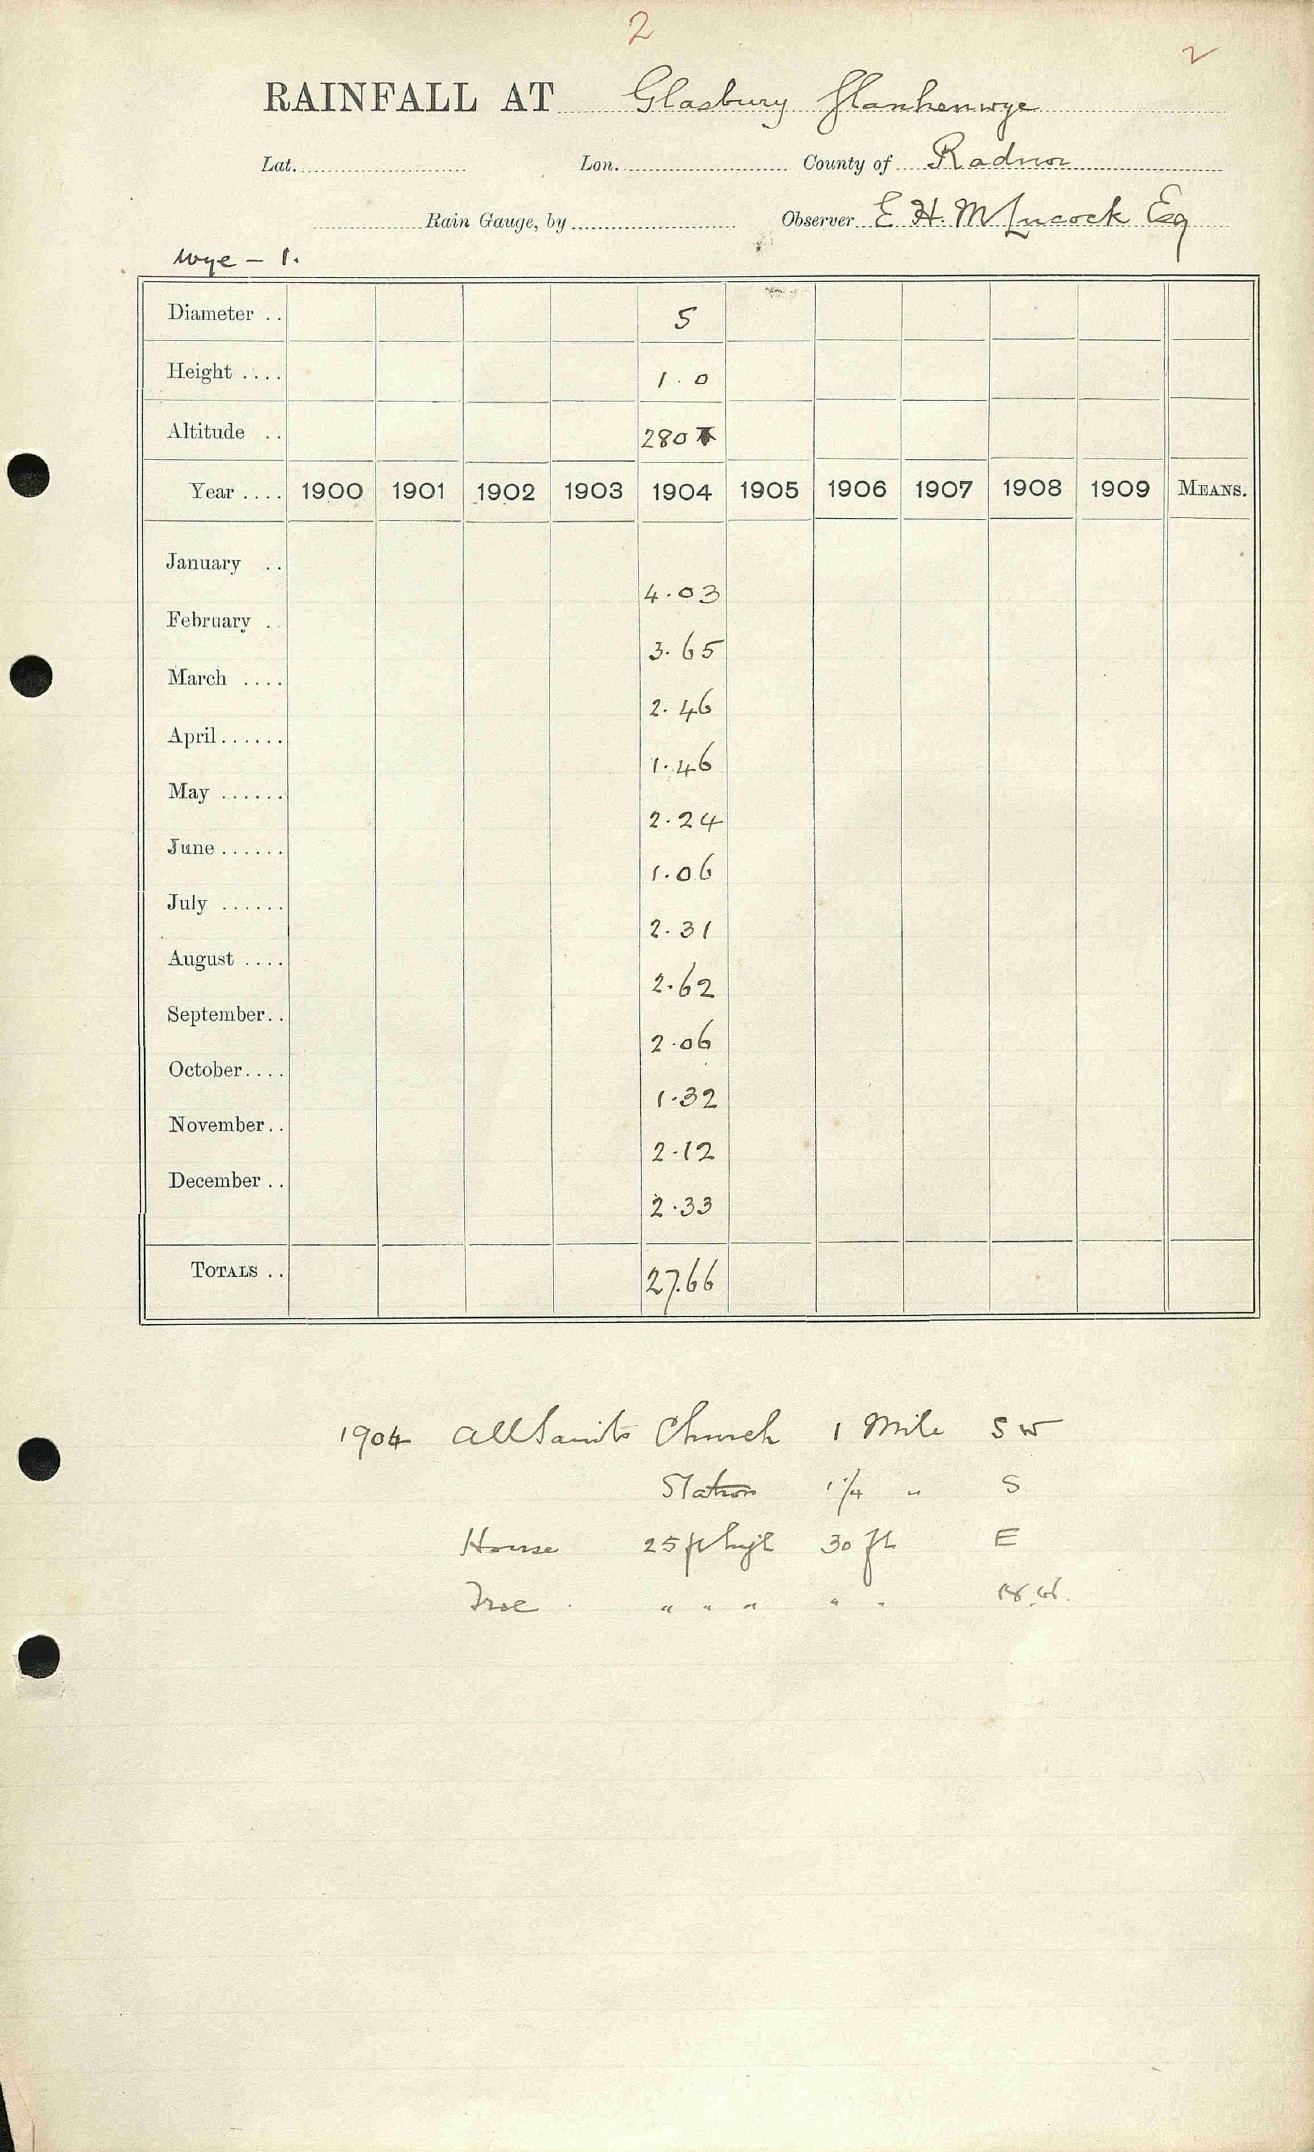 2
2
RAINFALL AT Glasbury
Lat. Lon. County of Radnor
Rain Gauge, by Observer E H. M Lucock Esq
Wye - 1.
Diameter .. 5
Height .... 1.0
Altitude .. 280
Year .... 1900 1901 1902 1903 1904 1905 1906 1907 1908 1909 MEANS.
January .. 4.03
February . 3.65
March .... 2.46
April...... 1.46
May ...... 2.24
June ...... 1.06
July ...... 2.31
August .... 2.62
September.. 2.06
October.... 1.32
November.. 2.12
December .. 2.33
TOTALS .. 27.66
1904 All Saints Church 1 Mile SW
Station 1 1/4 " S
House 25 ft high 30 ft E
Tree " " " " "